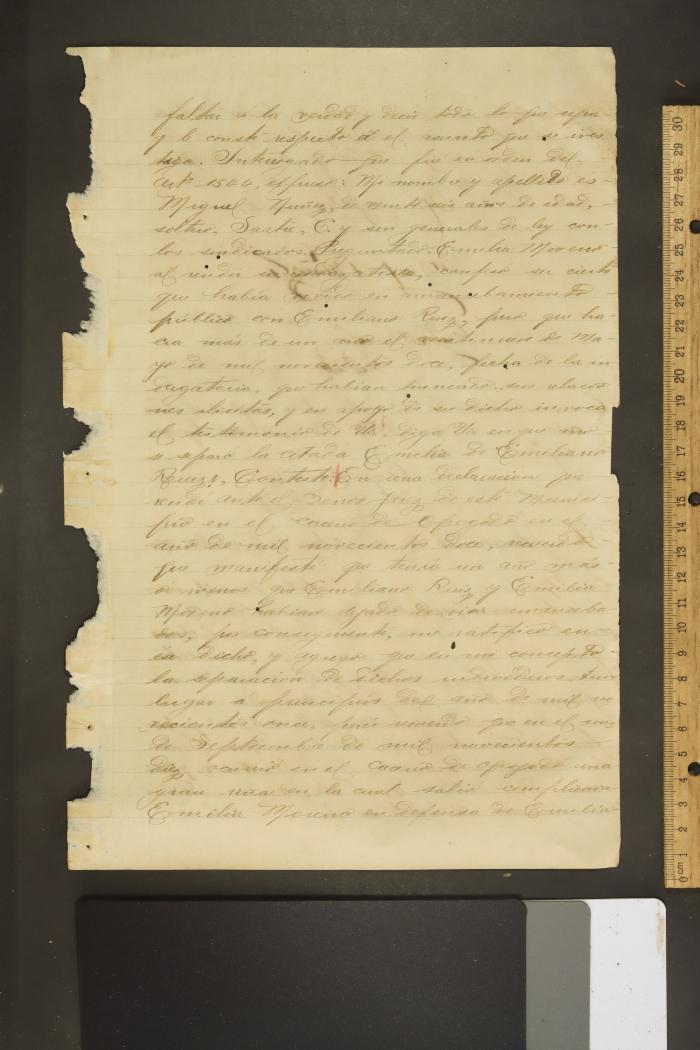 faltar á la verdad y decir todo lo que sepa
y le conste respecto á el asunto que se inves
tiga. Interrogado que fue en orden del
Artº 1544, expuso: Mi nombre y apellido es
Miguel Nuñez, de veinte seis años de edad,
soltero, Sastre, C. y sin generales de ley con
los sindicados. Preguntado: Emilia Moreno
al rendir su indagatoria, confesó ser cierto
que había vivido en amancebamiento
público con Emiliano Ruiz, pero que ha-
cia mas de un año el veintinueve de Ma-
yo de mil novecientos doce, fecha de la in
dagatoria, que habian truncado sus relacio
nes ilicitas, y en apoyo de su dicho invoca
el testimonio de Ud. diga Ud en que
se separó la citada Emilia de Emiliano
Ruiz, Contestó: En una declaracion que
rendí ante el Señor Juez de este Munici-
pio en el caserio de Apogado en el
año de mil novecientos doce, recuerdo
que manifesté que tenia un año más
ó menos que Emiliano Ruiz y Emilia
Moreno habian dejado de vivir amanceba
dos, por consiguiente, me ratifico en
ese dicho, y agrego que en mi concepto
la separacion de dichos individuos tuvo
lugar á principios del año de mil no
vecientos once, pues recuerdo que en el mes
de Septiembre de mil novecientos
diez ocurrió en el caserio de Apogado una
gran riña en la cual salió complicada
Emilia Moreno en defensa de Emilia